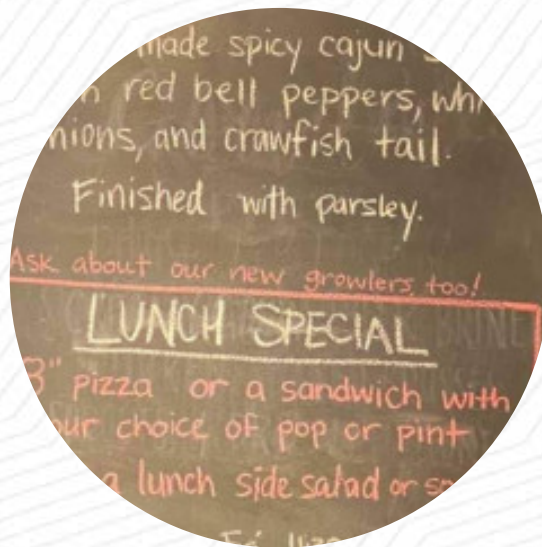 made spicy cajun
red bell peppers,
and crawfish tail.
Finished with parsley.
Ask about our new growlers, too!
LUNCH SPECIAL
pizza or a sandwich with
choice of pop or pint
a lunch side salad or